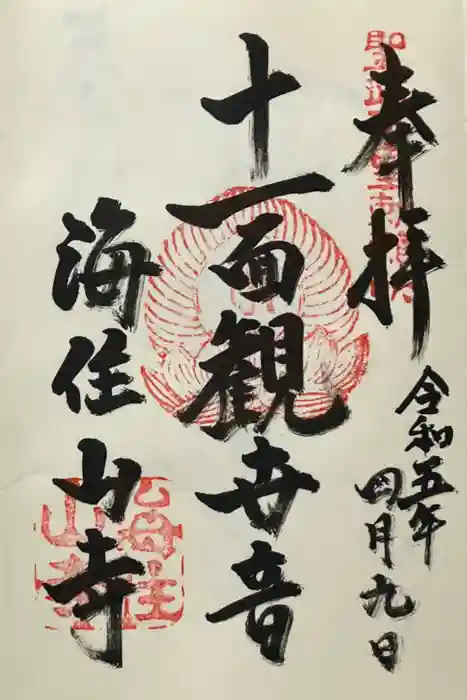 奉拝
令和五年
四月九日
十一面観世音
海住山寺